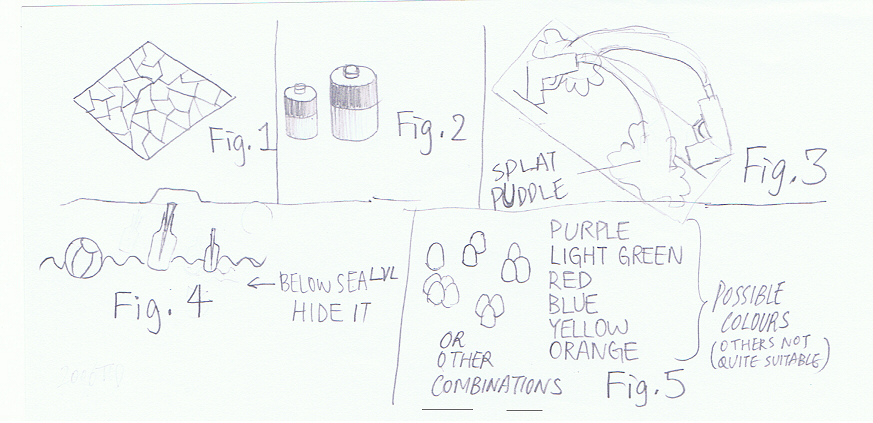 Fig. 1
Fig. 2
SPLAT
PUDDLE
Fig. 3
BELOW SEA LVL
HIDE IT
Fig. 4
PURPLE
LIGHT GREEN
RED
BLUE
YELLOW
ORANGE
POSSIBLE
COLOURS
(OTHERS NOT
QUITE SUITABLE)
OR
OTHER
COMBINATIONS
Fig. 5